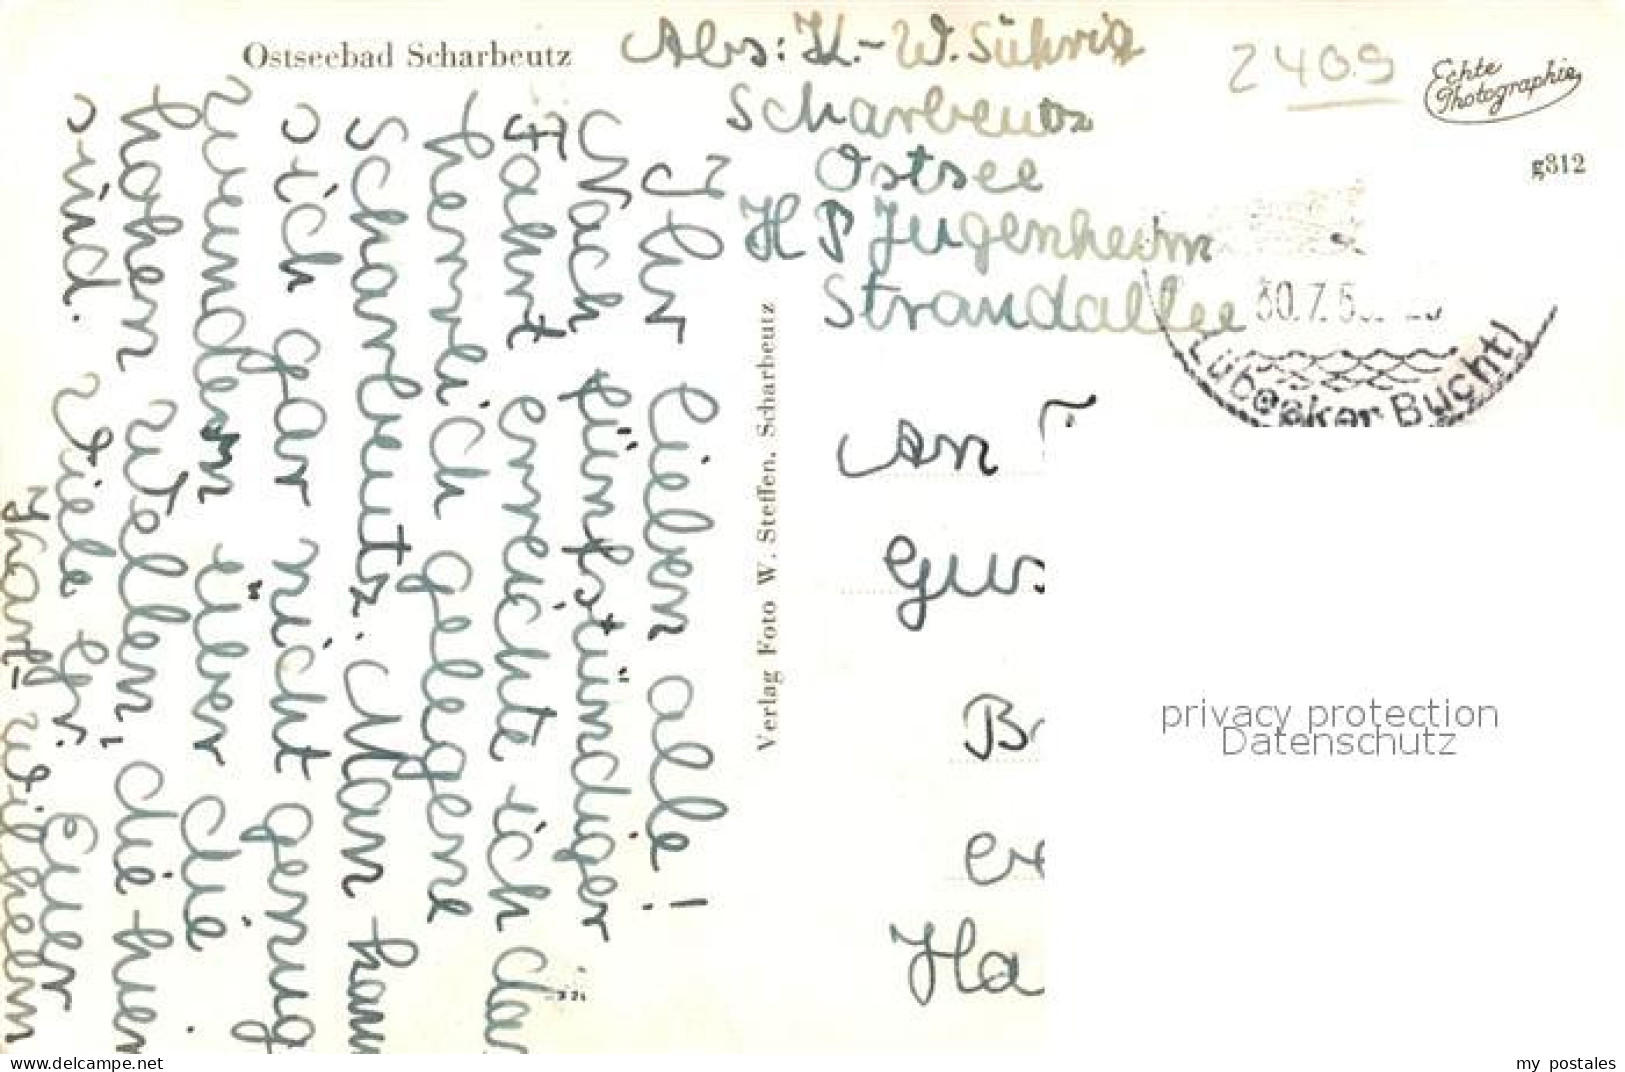 Ostseebad Scharbeutz
Abs: K.-W. Sühri
Scharbeutz
Ostsee
HP Jugenheim
Strandallee
2409
Echte
Photographie
g312
30.7.5
Lübecker Bucht
Ihr lieben alle!
Nach fünfstündiger
Fahrt erreichte ich das
herrlich gelegene
Scharbeutz. Man kann
sich gar nicht genug
wundern über die
hohen Wellen, die hier
sind. Viele Gr. Euer
Karl-Wilhelm
Verlag Foto W. Steffen, Scharbeutz
An
privacy protection
Datenschutz
www.delcampe.net
my_postales